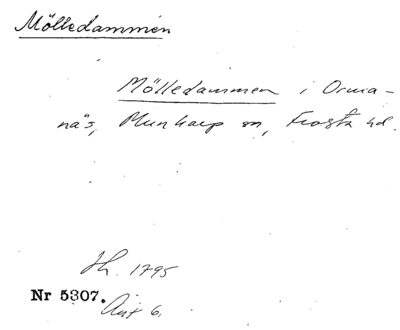 Mölledammen
Mölledammen i Orma-
näs, Munkarp sn, Frosta hd.
Jh. 1795
Nr 5307.
6.